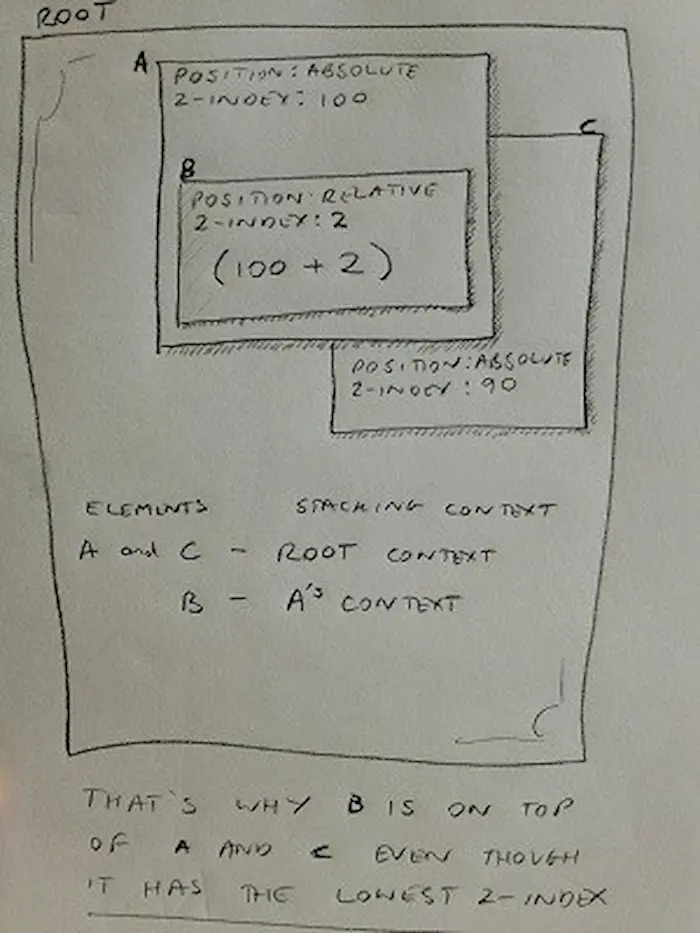 ROOT
A
POSITION: ABSOLUTE
Z-INDEX: 100
C
B
POSITION: RELATIVE
Z-INDEX: 2
(100 + 2)
POSITION: ABSOLUTE
Z-INDEX: 90
ELEMENTS STACKING CONTEXT
A and C - ROOT CONTEXT
B - A's CONTEXT
THAT'S WHY B IS ON TOP
OF A AND C EVEN THOUGH
IT HAS THE LOWEST Z-INDEX